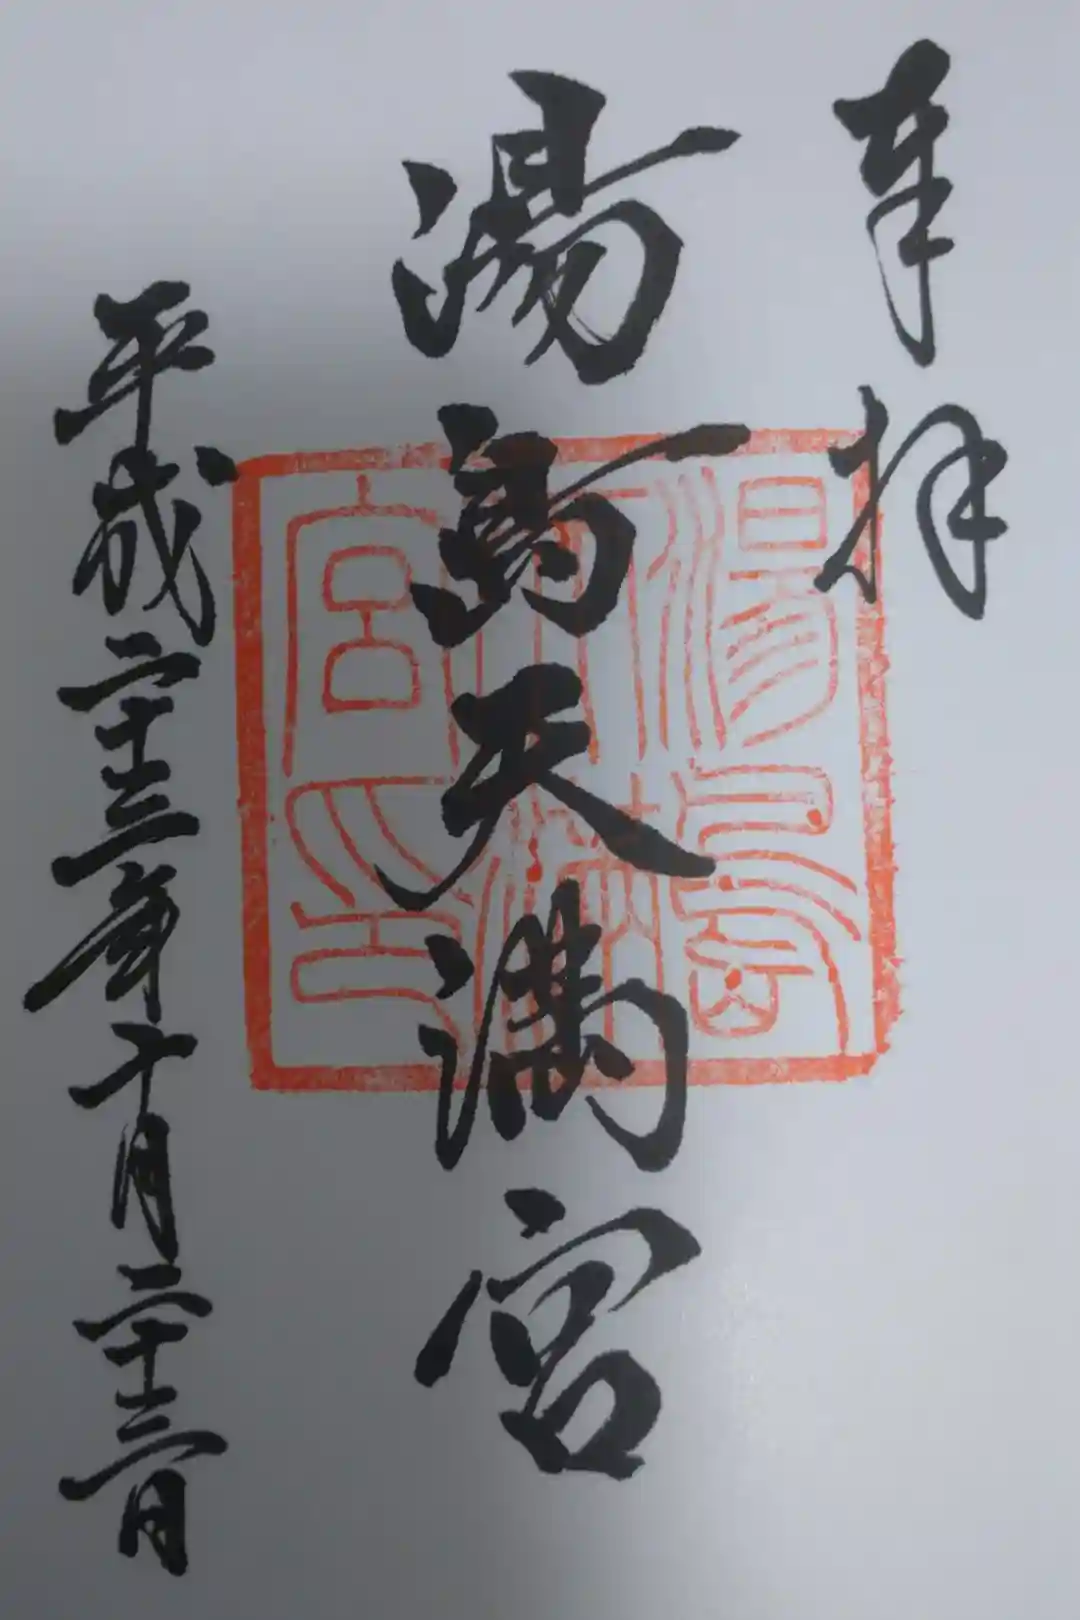 奉拝
湯島天満宮
平成二十三年十月二十三日
湯島天満宮印